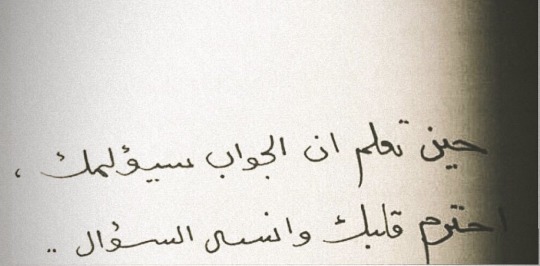 حين تعلم ان الجواب سيؤلمك ،
احترم قلبك وانسى السؤال ..